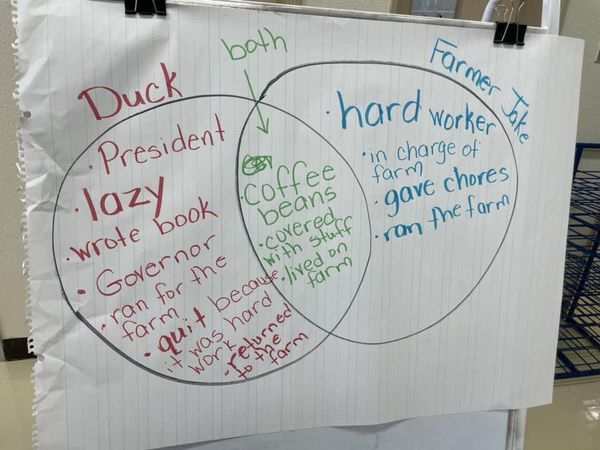 both
Duck
• President
• lazy
• wrote book
• Governor
• ran for the
farm
• quit because
it was hard
work
• returned
to the
farm
• coffee
beans
• covered
with stuff
• lived on
farm
Farmer Jake
• hard worker
• in charge of
farm
• gave chores
• ran the farm